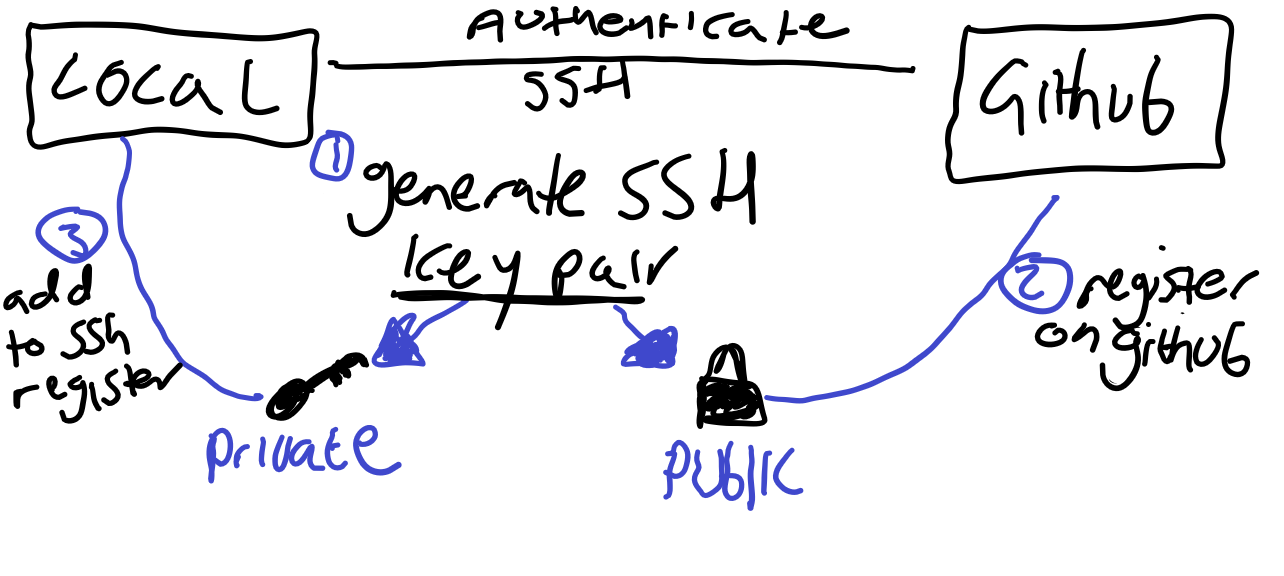 Authenticate
Local
SSH
Github
1
generate SSH
key pair
3
add
to SSh
register
2
register
on github
Private
PUBlIC